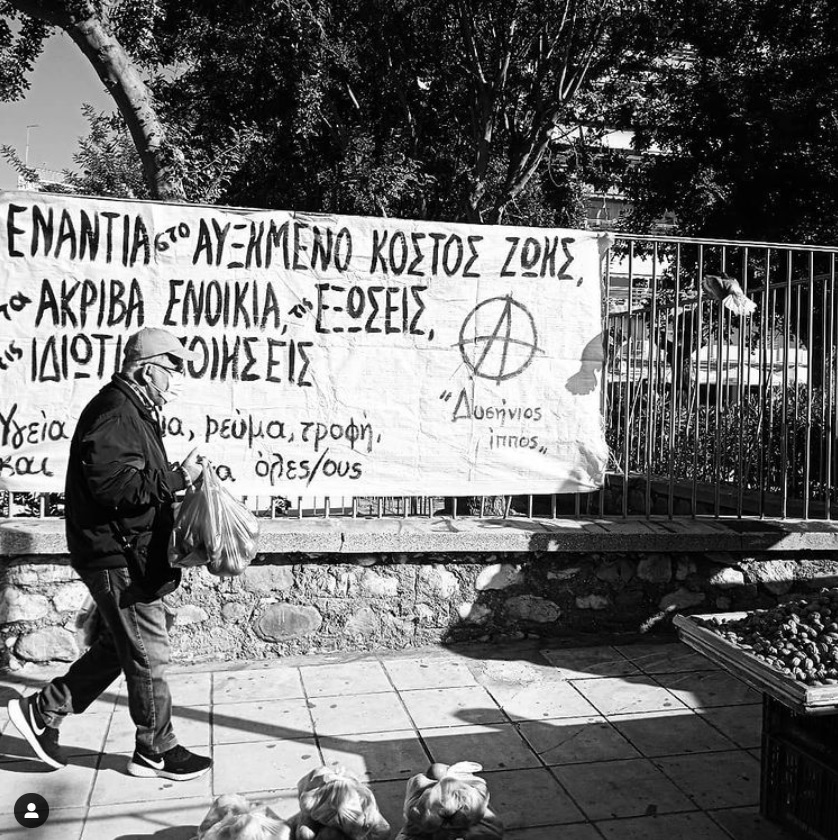 ΕΝΑΝΤΙΑ στο ΑΥΞΗΜΕΝΟ ΚΟΣΤΟΣ ΖΩΗΣ,
τα ΑΚΡΙΒΑ ΕΝΟΙΚΙΑ, τις ΕΞΩΣΕΙΣ,
τις
Υγεία ρεύμα, τροφή,
και όλες/ους
"Δυσήνιος
ίππος"